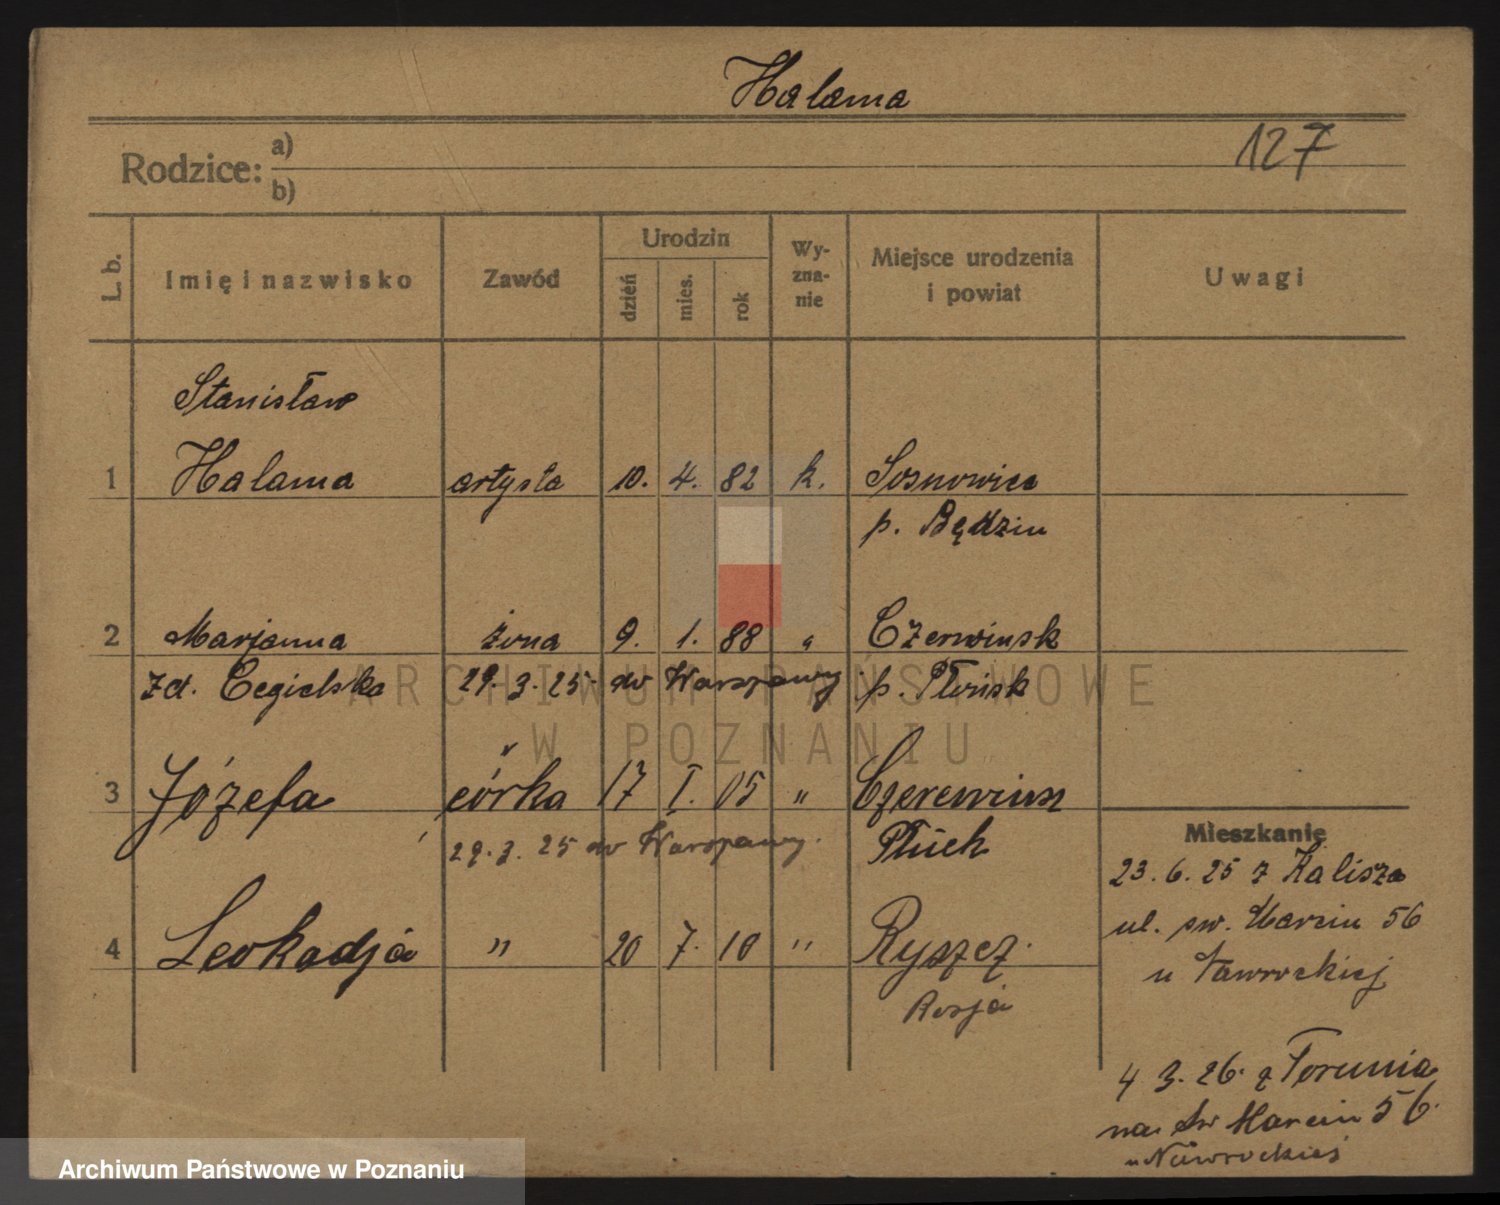 Halama
127
Rodzice: a)
b)
L. b. Imię i nazwisko Zawód Urodzin dzień mies. rok Wy-zna-nie Miejsce urodzenia i powiat Uwagi
Stanisław
1 Halama artysta 10. 4. 82 k. Sosnowice
p. Będzin
2 Marjanna żona 9. 1. 88 " Czerwinsk
zd. Cegielska 29.3.25 do Warszawy p. Płońsk
ARCHIWUM PAŃSTWOWE
W POZNANIU
3 Józefa córka 17 I. 05 "
29.3.25 do Warszawy.
Mieszkanie
23.6.25 z Kalisza
4 Leokadja " 20 7. 10 "
ul. św. Marcin 56
u
Rosja
4 3. 26. z Torunia
na Św Marcin 56.
u Nawrockiej
Archiwum Państwowe w Poznaniu